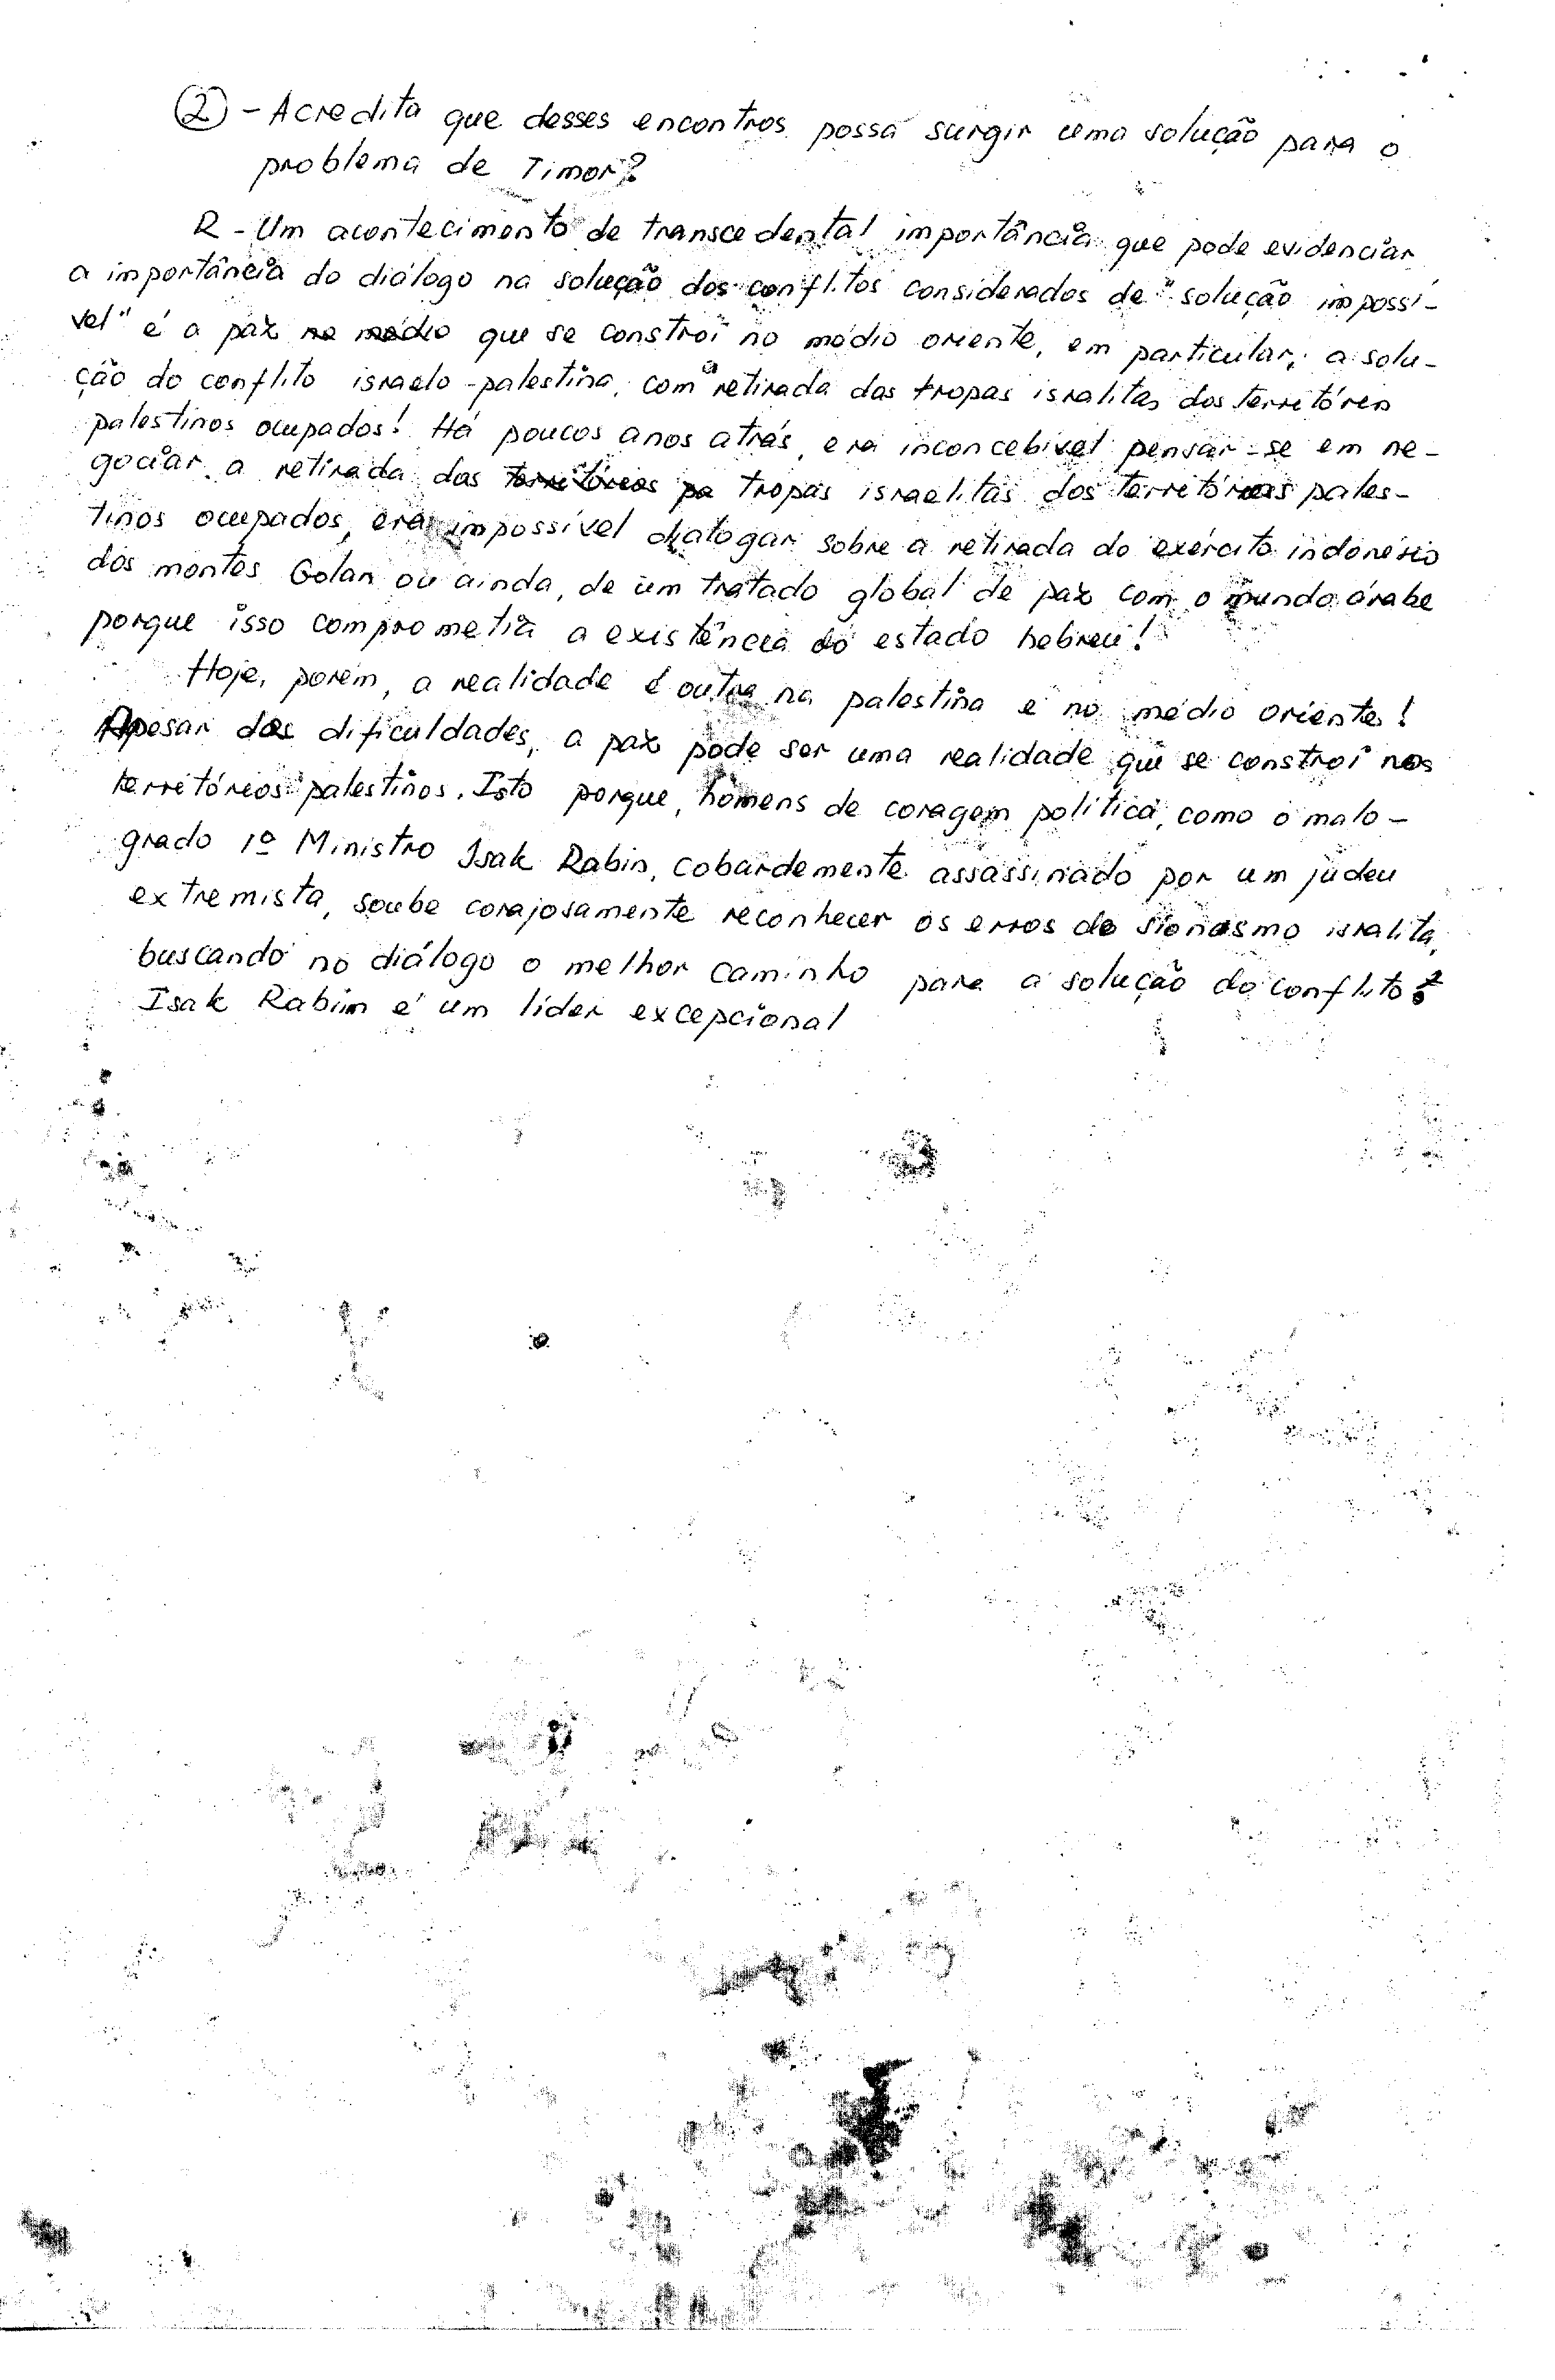 ② - Acredita que desses encontros possa surgir uma solução para o
problema de Timor?
R - Um acontecimento de transcedental importância que pode evidenciar
a importância do diálogo na solução dos conflitos considerados de "solução impossí-
vel" é a paz no médio que se constroi no médio oriente, em particular, a solu-
ção do conflito israelo-palestina, com a retirada das tropas isralitas dos territórios
palestinos ocupados! Há poucos anos atrás, era inconcebível pensar-se em ne-
gociar a retirada das territórios pa tropas israelitas dos territórios pales-
tinos ocupados, era impossível dialogar sobre a retirada do exército indonésio
dos montes Golan ou ainda, de um tratado global de paz com o mundo árabe
porque isso comprometia a existência do estado hebreu!
Hoje, porém, a realidade é outra na palestina e no médio oriente!
Apesar das dificuldades, a paz pode ser uma realidade que se constroi nos
territórios palestinos. Isto porque, homens de coragem política, como o malo-
grado 1º Ministro Isak Rabin, cobardemente assassinado por um judeu
extremista, soube corajosamente reconhecer os erros do sionismo isralita,
buscando no diálogo o melhor caminho para a solução do conflito!
Isak Rabin é um líder excepcional